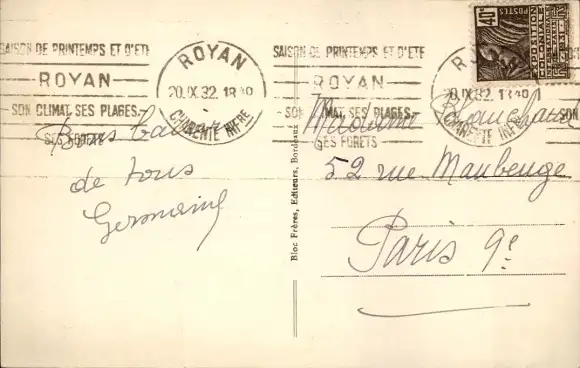 SAISON DE PRINTEMPS ET D'ÉTÉ
ROYAN
SON CLIMAT, SES PLAGES,
SES FORETS
ROYAN
20.IX.32
CHARENTE INFRE
SAISON DE PRINTEMPS ET D'ÉTÉ
ROYAN
SON CLIMAT, SES PLAGES,
SES FORETS
20.IX.32
CHARENTE INFRE
40c
POSTES
EXPOSITION
COLONIALE
Bons
de tous
Germaine
Bloc Frères, Editeurs, Bordeaux
Madame
52 rue Maubeuge
Paris 9e